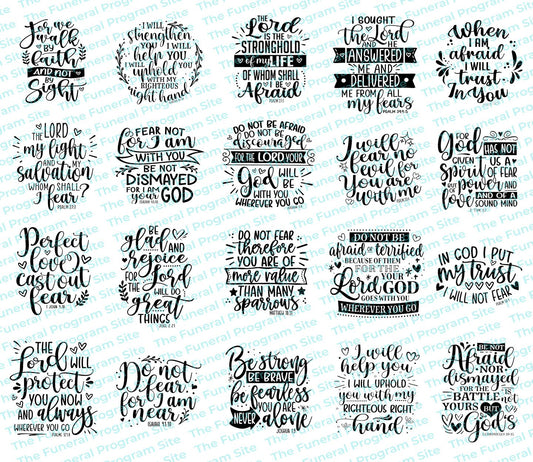 For we
walk
BY
faith
AND NOT
BY
Sight
I WILL
strengthen
you I WILL
help you
I WILL
uphold
YOU
WITH MY
RIGHTEOUS
right hand
THE
Lord
IS THE
STRONGHOLD
of my LIFE
OF WHOM SHALL
I BE
Afraid
PSALM 27:1
I SOUGHT
the Lord
AND HE
ANSWERED
ME AND
DELIVERED
ME FROM all
my fears
PSALM 34:4
When
I AM
afraid
I WILL
trust
In You
THE LORD
my light
AND MY
salvation
WHOM SHALL I
fear?
PSALM 27:1
FEAR NOT
for I am
WITH YOU
BE NOT
DISMAYED
FOR I AM
your GOD
ISAIAH 41:10
DO NOT BE AFRAID
DO NOT BE
discouraged
FOR THE LORD YOUR
God WILL BE
WITH YOU
WHEREVER YOU GO
I will
fear no
evil for
You are
with me
FOR
God HAS NOT
GIVEN US A
Spirit OF FEAR
BUT OF Power AND
love AND OF A
SOUND MIND
Perfect
love
cast out
fear
1 JOHN 4:18
Be
glad AND
rejoice
FOR THE
Lord
WILL DO
great
THINGS
JOEL 2:21
DO NOT FEAR
therefore
YOU ARE OF
more value
THAN MANY
sparrows
MATTHEW 10:31
DO NOT BE
afraid or terrified
BECAUSE OF THEM
FOR THE
Lord YOUR
GOD
GOES WITH YOU
WHEREVER YOU GO
IN GOD I PUT
my trust
I WILL NOT FEAR
THE
Lord WILL
protect
YOU NOW
AND always
WHEREVER YOU GO
PSALM 121:8
Do not
fear
for I am
near
ISAIAH 43:10
Be strong
BE BRAVE
be fearless
YOU ARE
NEVER alone
JOSHUA 1:9
I will
help you
I WILL UPHOLD
you with my
RIGHTEOUS RIGHT
hand
BE NOT
Afraid
NOR
dismayed
FOR THE
BATTLE IS
not YOURS
BUT
God's
The Funeral Program Site